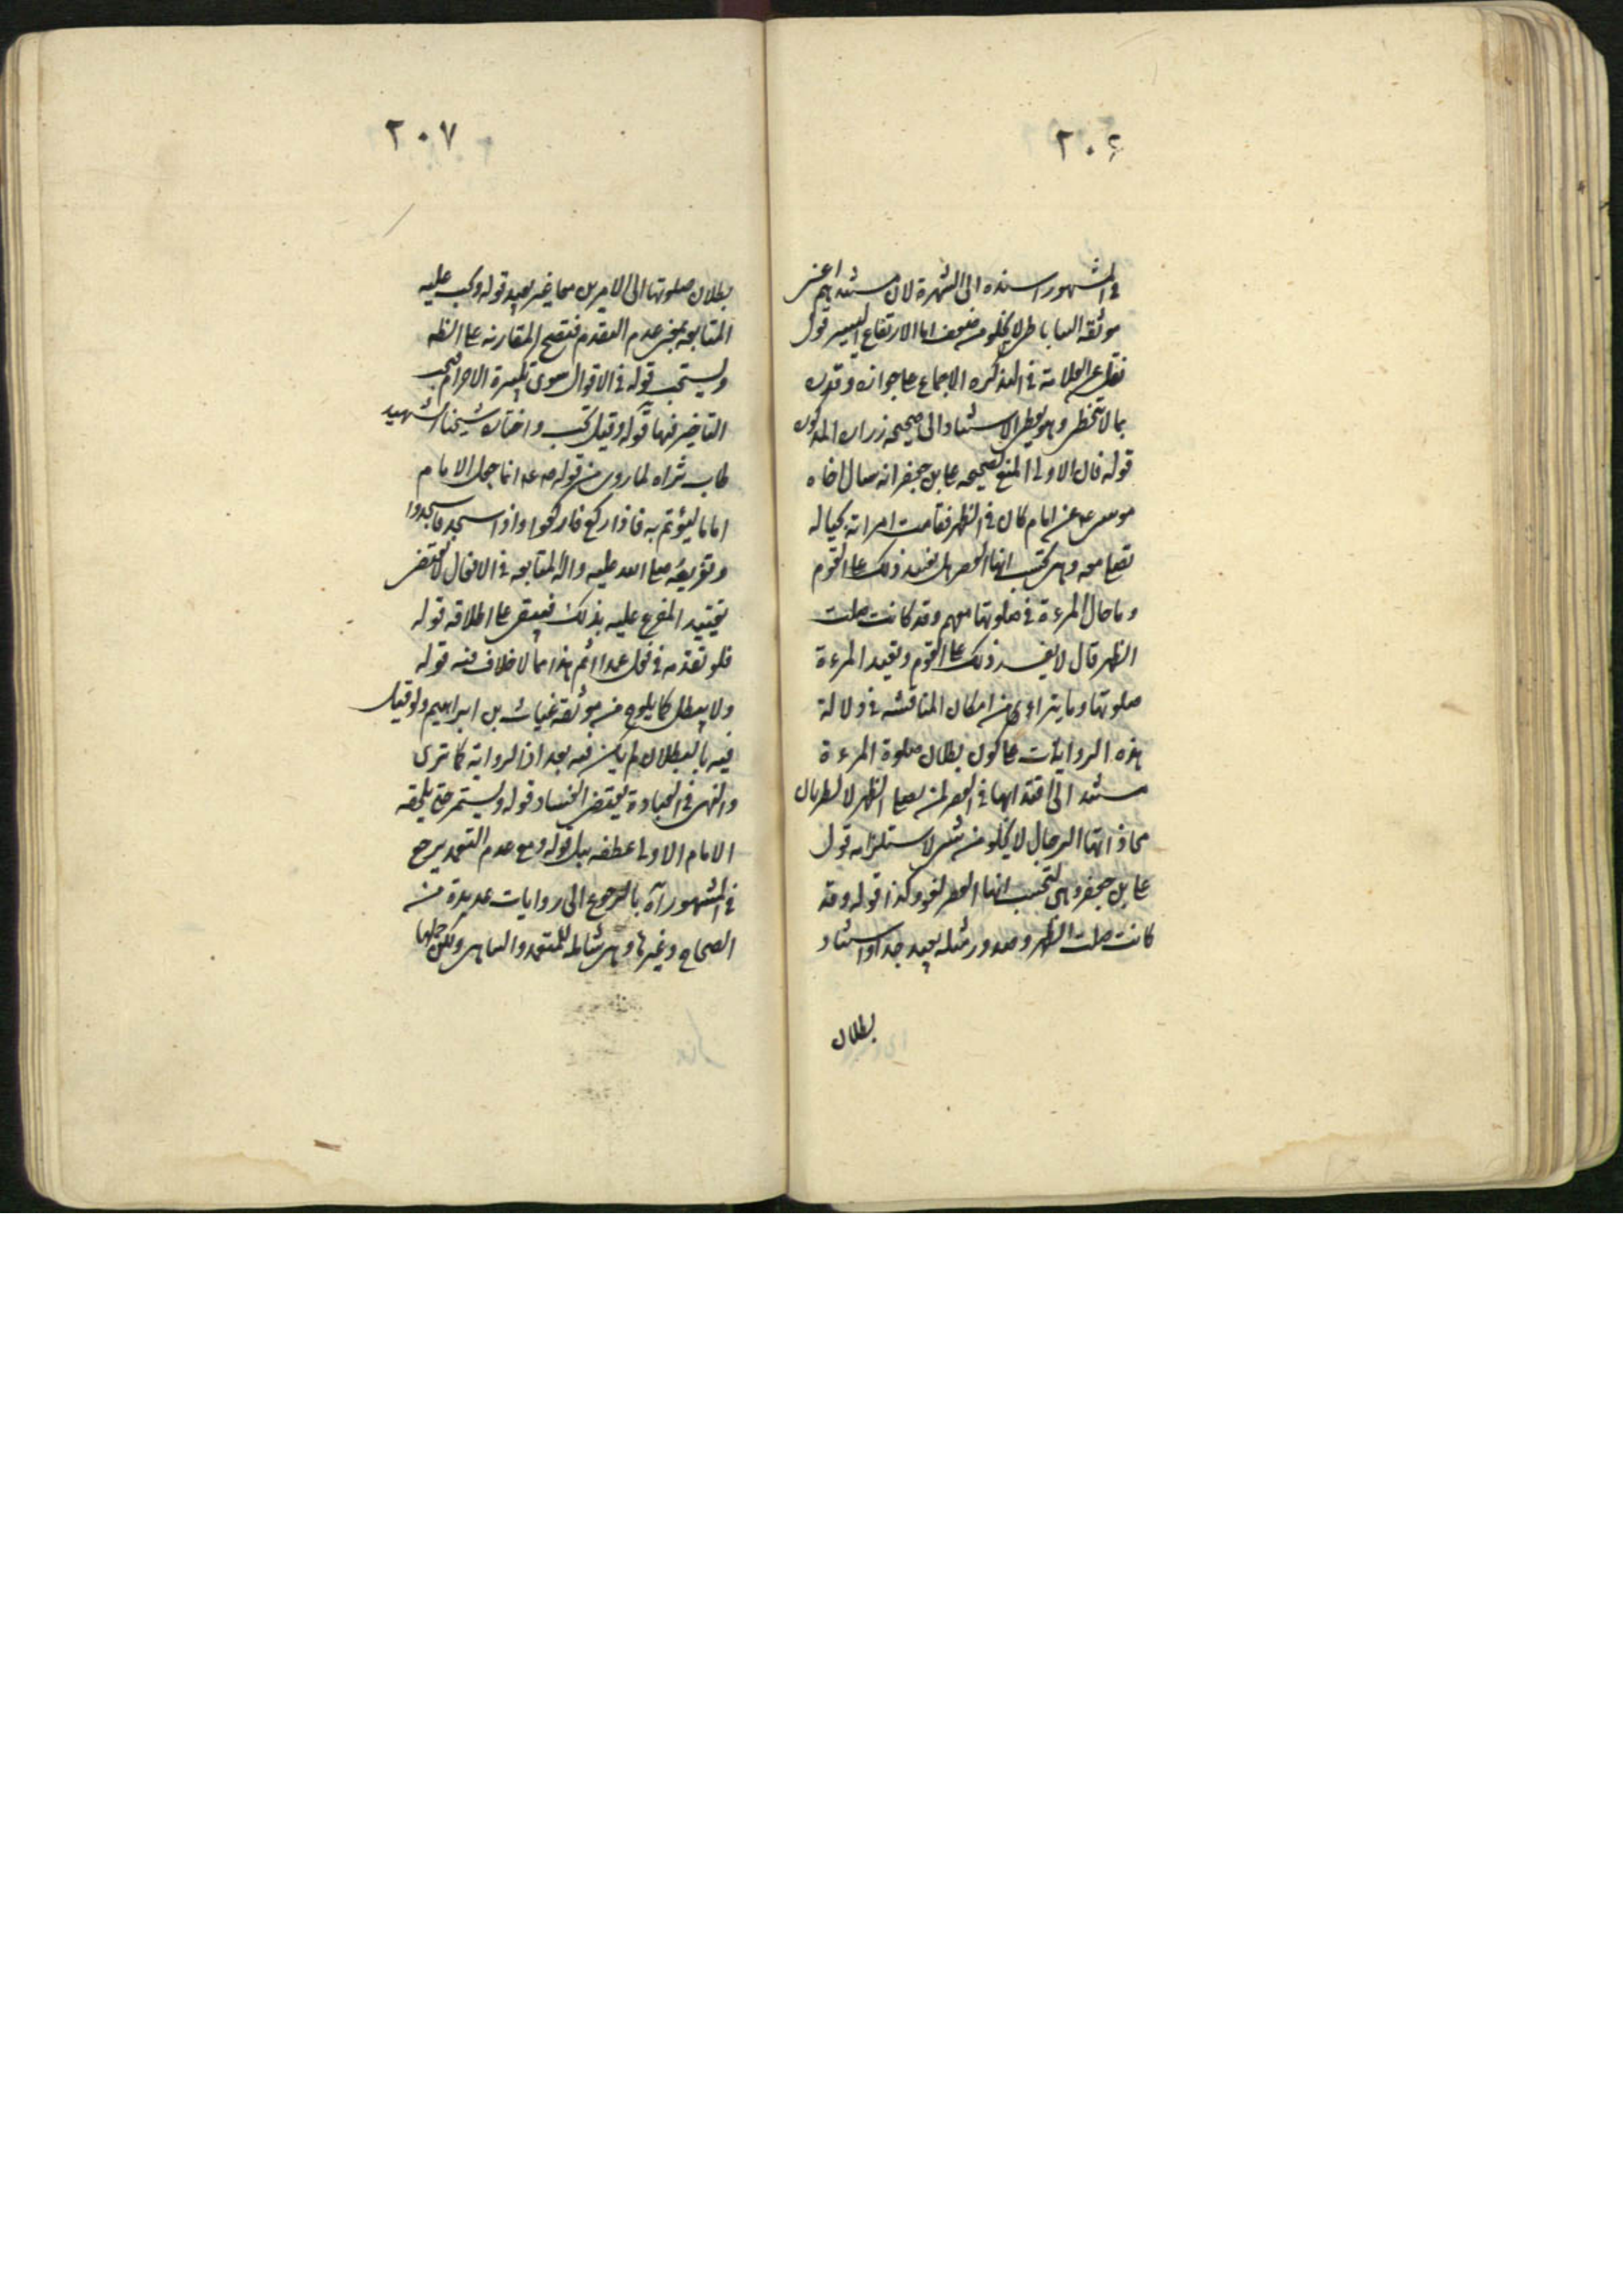 ٢٠٦
في المشهور اسنده الى الشهرة لان مستندهم اعني
موثقة الساباطي لا يخلو من ضعف اما الارتفاع اليسير قول
نقل العلامة في التذكرة الاجماع على جوازه وقدره
بما لا يتخطى وهو يعطي الاستناد الى صحيحة زرارة المذكورة
قوله فان الاولى المنع لصحيحة علي بن جعفر انه سال اخاه
موسى ع عن امام كان في الظهر فقامت امراته بحياله
تصلي معه وهي تحسب انها العصر هل يفسد ذلك على القوم
وما حال المرءة في صلوتها معهم وقد كانت صلت
الظهر قال لا يفسد ذلك على القوم وتعيد المرءة
صلوتها وما يتراءى من امكان المناقشة في دلالة
هذه الروايات على كون بطلان صلوة المرءة
مستند الى اقتدائها في العصر لمن يصلي الظهر لا لطريان
محاذاتها الرجال لا يخلو من شئ لاستلزامه قول
علي بن جعفر وهي تحسب انها العصر لغو وكذا قوله وقد
كانت صلت الظهر وصدور مثله بعيد جدا واسناد
بطلان
٢٠٧
بطلان صلوتها الى الامرين معا غير بعيد قوله وتجب عليه
المتابعة بمعنى عدم التقدم فتصح المقارنة على الظه
ويستحب قوله في الاقوال سوى تكبيرة الاحرام فيجب
التاخير فيها قوله وقيل تجب واختاره شيخنا الشهيد
طاب ثراه لما روي من قوله ص ع انما جعل الامام
اماما ليؤتم به فاذا ركع فاركعوا واذا سجد فاسجدوا
وتفريعه صلى الله عليه واله المتابعة في الافعال لا يقتضي
تقييد المفرع عليه بذلك فيبقى على اطلاقه قوله
فلو تقدمه في فعل عمدا اثم هذا مما لا خلاف فيه قوله
ولا يبطل كما يلوح من موثقة غياث بن ابراهيم ولو قيل
فيه بالبطلان لم يكن فيه بعد اذ الرواية كما ترى
والنهي في العبادة يقتضي الفساد قوله ويستمر حتى يلحقه
الامام الاولى عطفه ببل قوله ومع عدم التعمد يرجع
في المشهور آه بالرجوع الى روايات عديدة من
الصحاح وغيرها وهي شاملة للمتعمد والساهي ولكن حملها